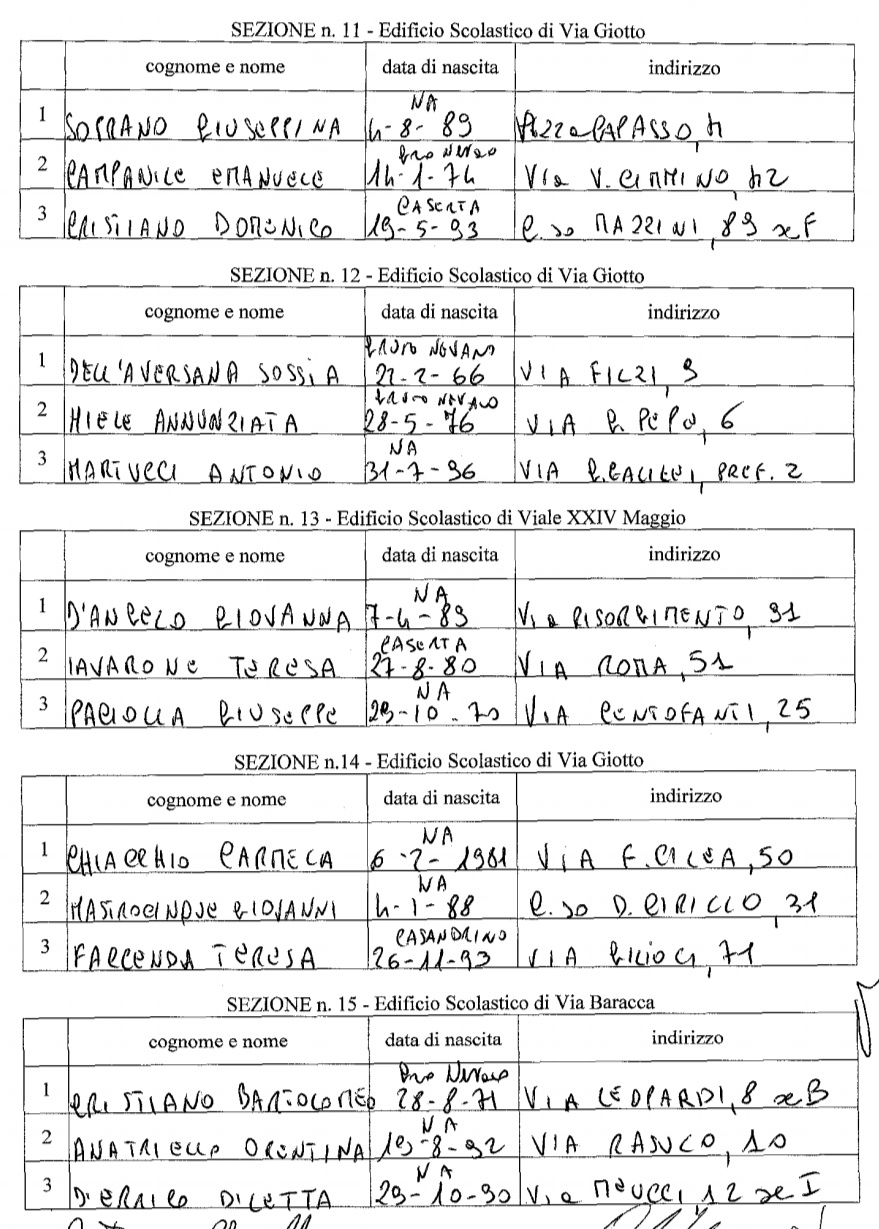 SEZIONE n. 11 - Edificio Scolastico di Via Giotto
cognome e nome data di nascita indirizzo
NA
1 SORRANO GIUSEPPINA 4-8-89 P.zza CAPASSO, 4
2 CAMPANILE EMANUELE 14-1-74 Via V. CIMMINO, 42
CASERTA
3 CRISTIANO DOMENICO 19-5-93 C.so MAZZINI, 89 sc F
SEZIONE n. 12 - Edificio Scolastico di Via Giotto
cognome e nome data di nascita indirizzo
1 DELL'AVERSANA SOSSIA 22-2-66 VIA FILZI, 9
2 MIELE ANNUNZIATA 28-5-76 VIA G. PEPE, 6
NA
3 MARTUCCI ANTONIO 31-7-96 VIA G. GALILEI, PREF. 2
SEZIONE n. 13 - Edificio Scolastico di Viale XXIV Maggio
cognome e nome data di nascita indirizzo
NA
1 D'ANGELO GIOVANNA 7-4-89 Via RISORGIMENTO, 91
CASERTA
2 IAVARONE TERESA 27-8-80 VIA ROMA, 51
NA
3 PACIOLLA GIUSEPPE 29-10-70 VIA CENTOFANTI, 25
SEZIONE n.14 - Edificio Scolastico di Via Giotto
cognome e nome data di nascita indirizzo
NA
1 CHIACCHIO CARMELA 6-2-1981 VIA F. CILEA, 50
NA
2 MASTROCINQUE GIOVANNI 4-1-88 C.so D. CIRILLO, 31
CASANDRINO
3 FARCENDA TERESA 26-11-93 VIA GIGLIO, 71
SEZIONE n. 15 - Edificio Scolastico di Via Baracca
cognome e nome data di nascita indirizzo
1 CRISTIANO BARTOLOMEO 28-8-71 VIA LEOPARDI, 8 sc B
NA
2 ANATRIELLO ORENTINA 19-8-92 VIA RASULO, 10
NA
3 D'ERRICO DILETTA 29-10-90 Via MEUCCI, 12 sc I